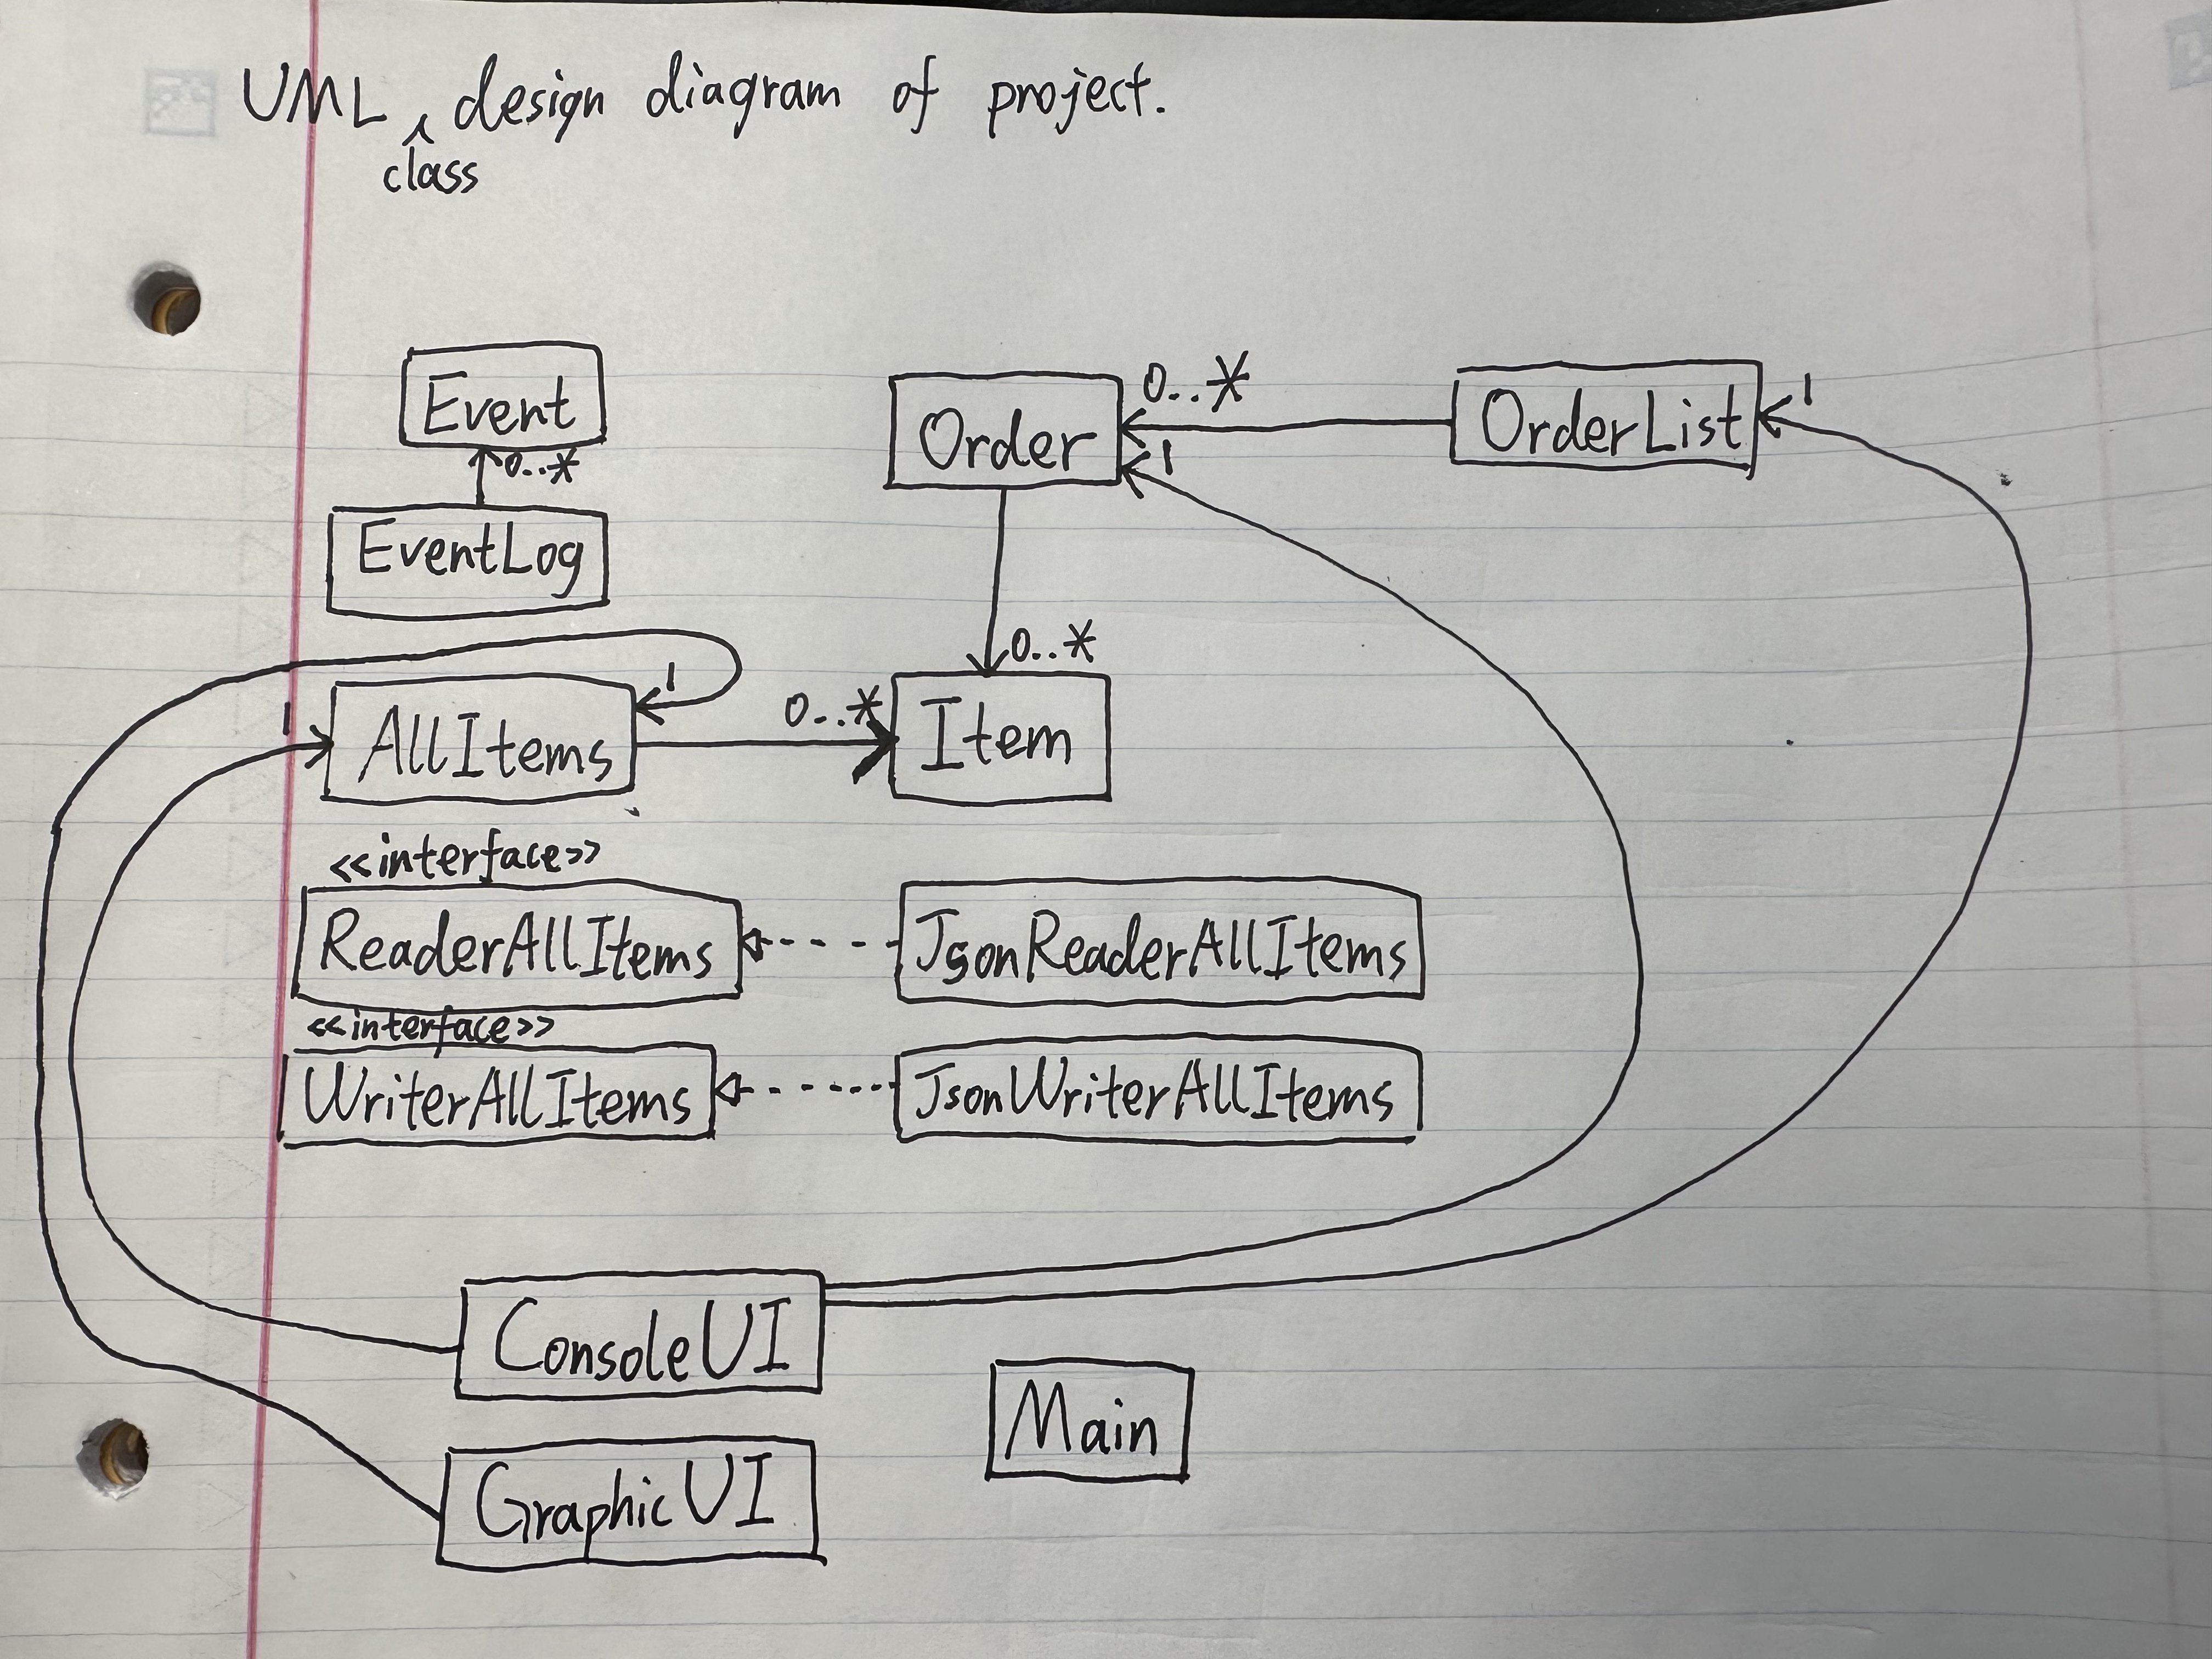 UML class design diagram of project.
Event
0..*
EventLog
Order
0..*
1
OrderList
1
0..*
1
1
AllItems
0..*
Item
<<interface>>
ReaderAllItems
JsonReaderAllItems
<<interface>>
WriterAllItems
JsonWriterAllItems
ConsoleUI
Main
GraphicUI